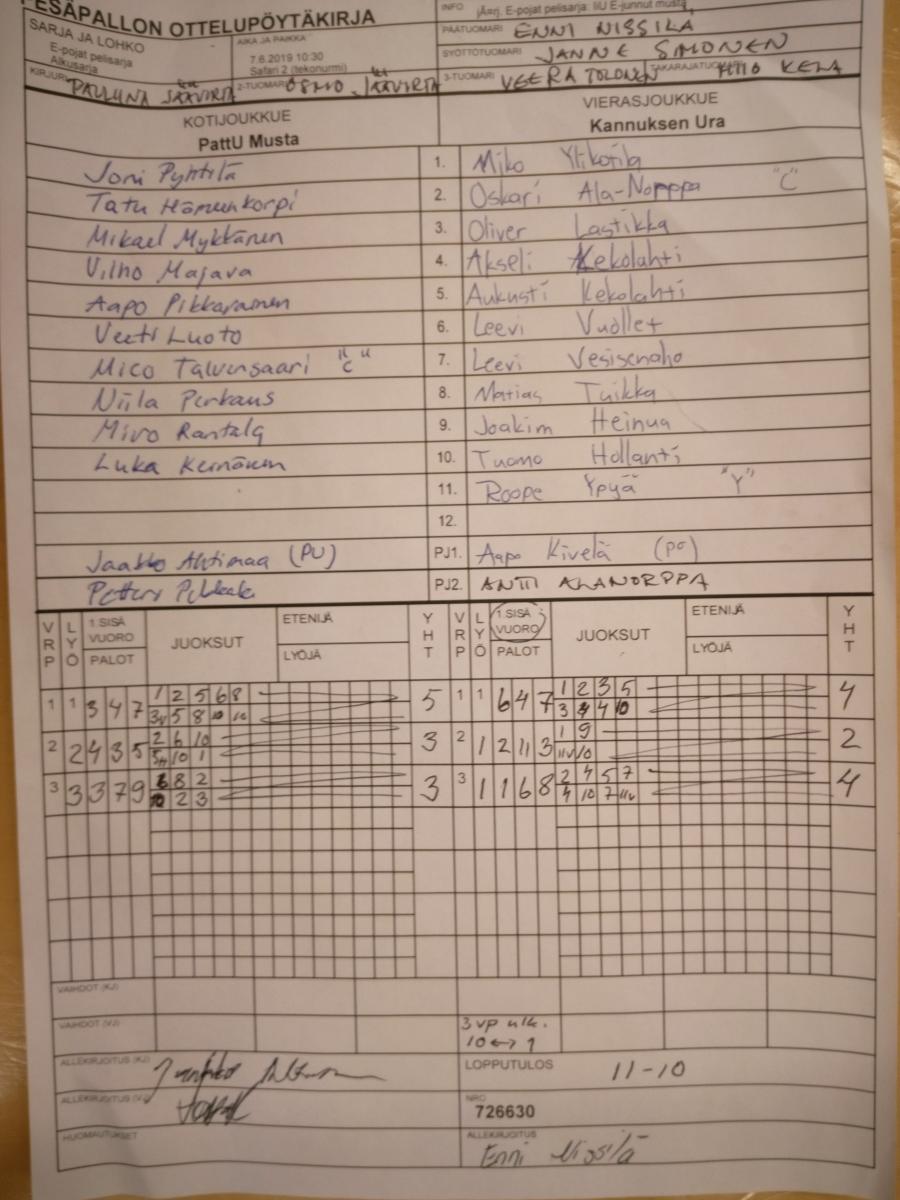 PESÄPALLON OTTELUPÖYTÄKIRJA
INFO E-pojat pelisarja:
SARJA JA LOHKO
E-pojat pelisarja
Alkusarja
AIKA JA PAIKKA
7.6.2019 10:30
Safari 2 (tekonurmi)
PÄÄTUOMARI ENNI NISSILÄ
SYÖTTÖTUOMARI JANNE SIMONEN
KIRJURI PAULIINA JÄÄVIRTA
2-TUOMARI OSMO JÄÄVIRTA
3-TUOMARI VEERA TOLONEN
TAKARAJATUOMARI
KOTIJOUKKUE
PattU Musta
VIERASJOUKKUE
Kannuksen Ura
Joni Pyhtilä 1. Miko Ylikotila
Tatu Hämeenkorpi 2. Oskari Ala-Norppa "C"
Mikael Mykkänen 3. Oliver Lastikka
Vilho Majava 4. Akseli Kekolahti
Aapo Pikkarainen 5. Aukusti Kekolahti
Veeti Luoto 6. Leevi Vuollet
Mico Talvensaari "C" 7. Leevi Vesisenaho
Niila Perkaus 8. Matias Tuikka
Miro Rantala 9. Joakim Heinua
Luka Keinänen 10. Tuomo Hollanti
11. Roope Ypyä "Y"
12.
Jaakko Ahtimaa (PU) PJ1. Aapo Kivelä (po)
PJ2. ANTTI ALANORPPA
VRP LYÖ 1.SISÄ VUORO PALOT JUOKSUT ETENIJÄ LYÖJÄ YHT VRP LYÖ 1.SISÄ VUORO PALOT JUOKSUT ETENIJÄ LYÖJÄ YHT
1 1 3 4 7 1 2 5 6 8 5 1 1 6 4 7 1 2 3 5 4
2 2 4 3 5 2 6 10 3 2 1 2 11 3 1 9 2
3 3 3 7 9 8 2 3 3 1 1 6 8 2 4 5 7 4
VAIHDOT (KJ)
VAIHDOT (VJ) 3 vp ulk.
10 <-> 1
ALLEKIRJOITUS (KJ)
LOPPUTULOS 11-10
ALLEKIRJOITUS (VJ)
NRO
726630
HUOMAUTUKSET
ALLEKIRJOITUS
Enni Nissilä